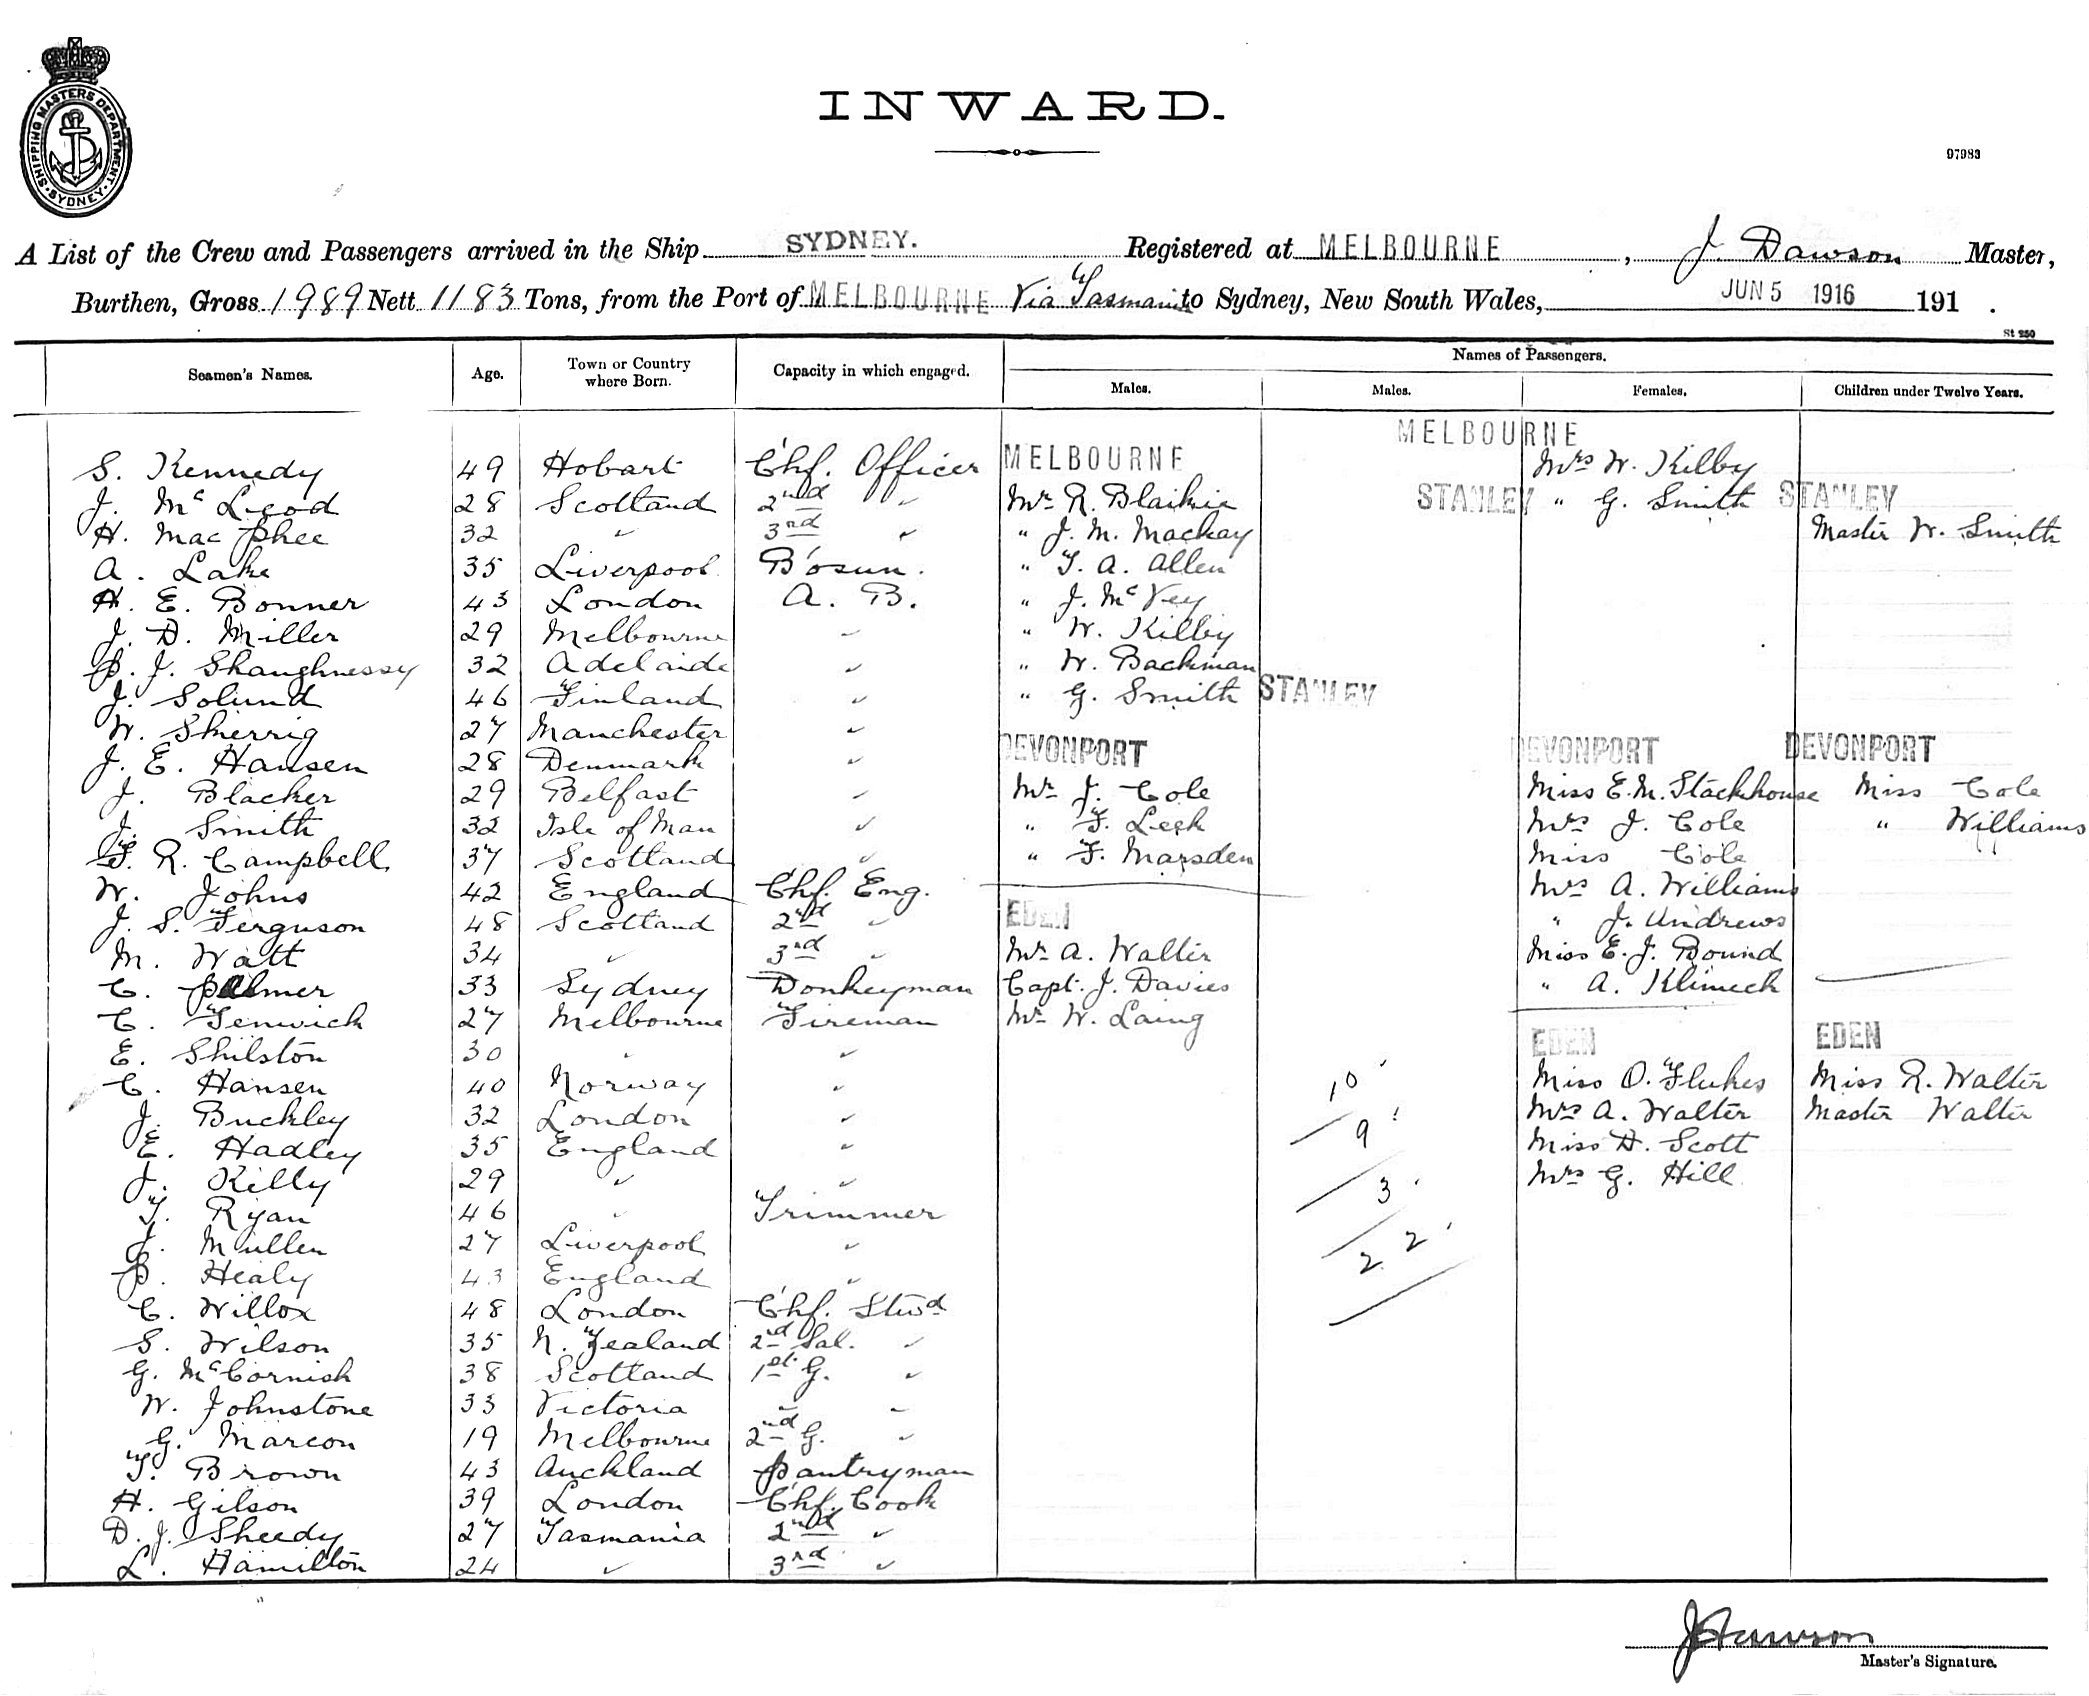 SHIPPING MASTERS DEPARTMENT. SYDNEY.
INWARD.
97983
A List of the Crew and Passengers arrived in the Ship SYDNEY. Registered at MELBOURNE, J. Dawson Master,
Burthen, Gross 1989 Nett 1183 Tons, from the Port of MELBOURNE Via Tasmania to Sydney, New South Wales, JUN 5 1916 191 .
St 250
Seamen's Names. Age. Town or Country where Born. Capacity in which engaged. Names of Passengers.
Males. Males. Females. Children under Twelve Years.
S. Kennedy 49 Hobart Chf. Officer
J. McLeod 28 Scotland 2nd "
H. MacPhee 32 " 3rd "
A. Lake 35 Liverpool B'osun.
H. E. Bonner 43 London A. B.
J. D. Miller 29 Melbourne "
P. J. Shaughnessy 32 Adelaide "
J. Solund 46 Finland "
W. Skerrig 27 Manchester "
J. E. Hansen 28 Denmark "
J. Blacker 29 Belfast "
J. Smith 32 Isle of Man "
F. R. Campbell 37 Scotland "
W. Johns 42 England Chf. Eng.
J. S. Ferguson 48 Scotland 2nd "
M. Watt 34 " 3rd "
C. Palmer 33 Sydney Donkeyman
C. Fenwick 27 Melbourne Fireman
E. Shilston 30 " "
C. Hansen 40 Norway "
J. Buckley 32 London "
E. Hadley 35 England "
J. Killy 29 " "
T. Ryan 46 " Trimmer
J. Mullen 27 Liverpool "
P. Healy 43 England "
C. Willox 48 London Chf. Stwd
S. Wilson 35 N. Zealand 2nd Sal. "
G. McCornish 38 Scotland 1st G. "
W. Johnstone 33 Victoria " "
G. Marcon 19 Melbourne 2nd G. "
T. Brown 43 Auckland Pantryman
H. Gilson 39 London Chf. Cook
D. J. Sheedy 27 Tasmania 2nd "
L. Hamilton 24 " 3rd "
MELBOURNE
Mr R. Blaikie
" J. M. Mackay
" T. A. Allen
" J. McVey
" W. Kilby
" W. Backman
" G. Smith STANLEY
DEVONPORT
Mr J. Cole
" F. Leek
" F. Marsden
EDEN
Mr A. Walter
Capt. J. Davies
Mr W. Laing
10
9
3
22
MELBOURNE
Mrs W. Kilby
STANLEY " G. Smith
DEVONPORT
Miss E. M. Stackhouse
Mrs J. Cole
Miss Cole
Mrs A. Williams
" J. Andrews
Miss E. J. Bound
" A. Klimeck
EDEN
Miss O. Flukes
Mrs A. Walter
Miss H. Scott
Mrs G. Hill
STANLEY
Master W. Smith
DEVONPORT
Miss Cole
" Williams
EDEN
Miss R. Walter
Master Walter
J Dawson
Master's Signature.